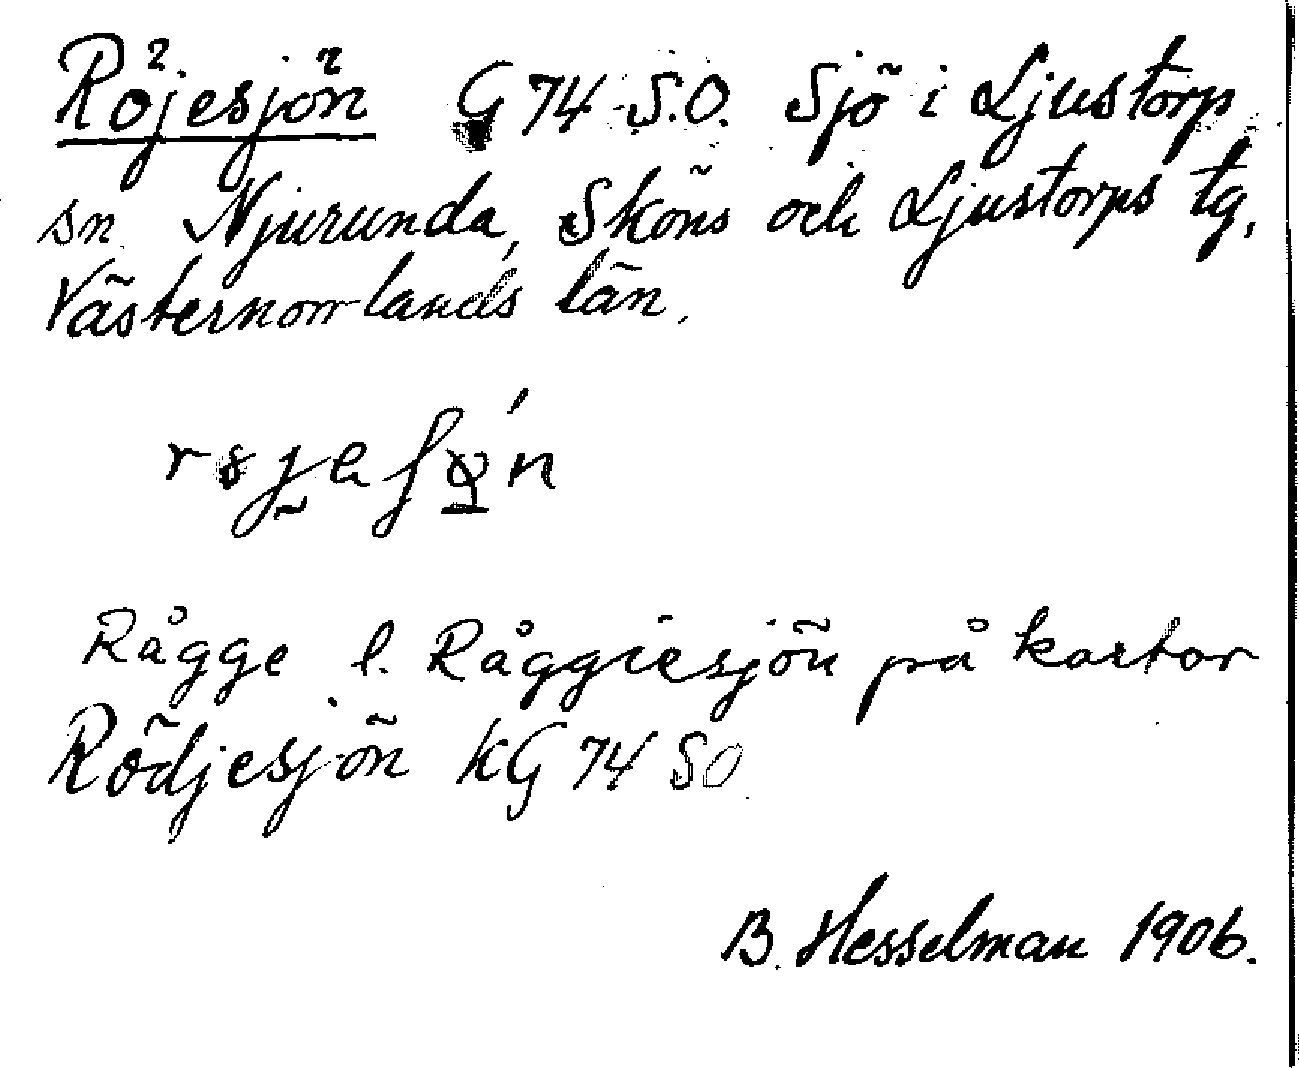 Röjesjön G 74 S.O. Sjö i Ljustorp
sn Njurunda, Sköns och Ljustorps tg,
Västernorrlands län.
Rågge l. Råggiesjön på kartor
Rödjesjön KG 74 SO
B. Hesselman 1906.